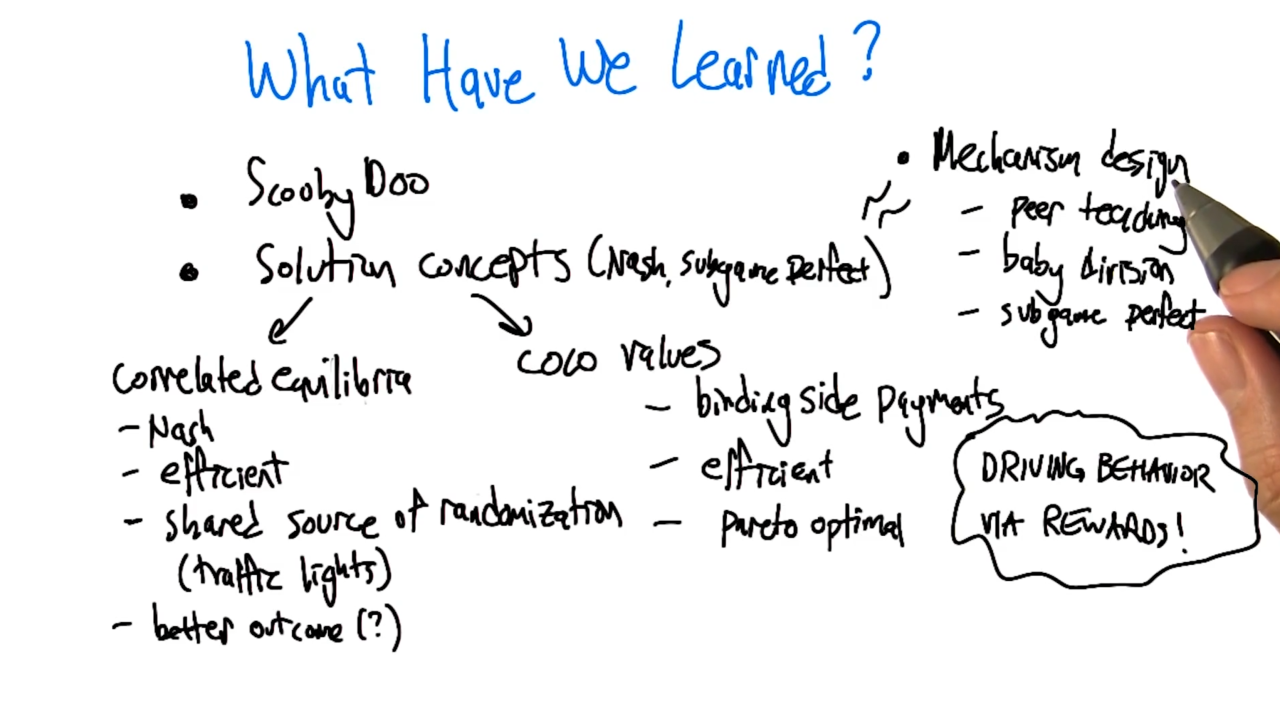 What Have We Learned?
• Scooby Doo
• Solution concepts (Nash, subgame perfect)
correlated equilibria
- Nash
- efficient
- shared source of randomization
(traffic lights)
- better outcome (?)
coco values
- binding side payments
- efficient
- pareto optimal
• Mechanism design
- peer teaching
- baby division
- subgame perfect
DRIVING BEHAVIOR
VIA REWARDS!